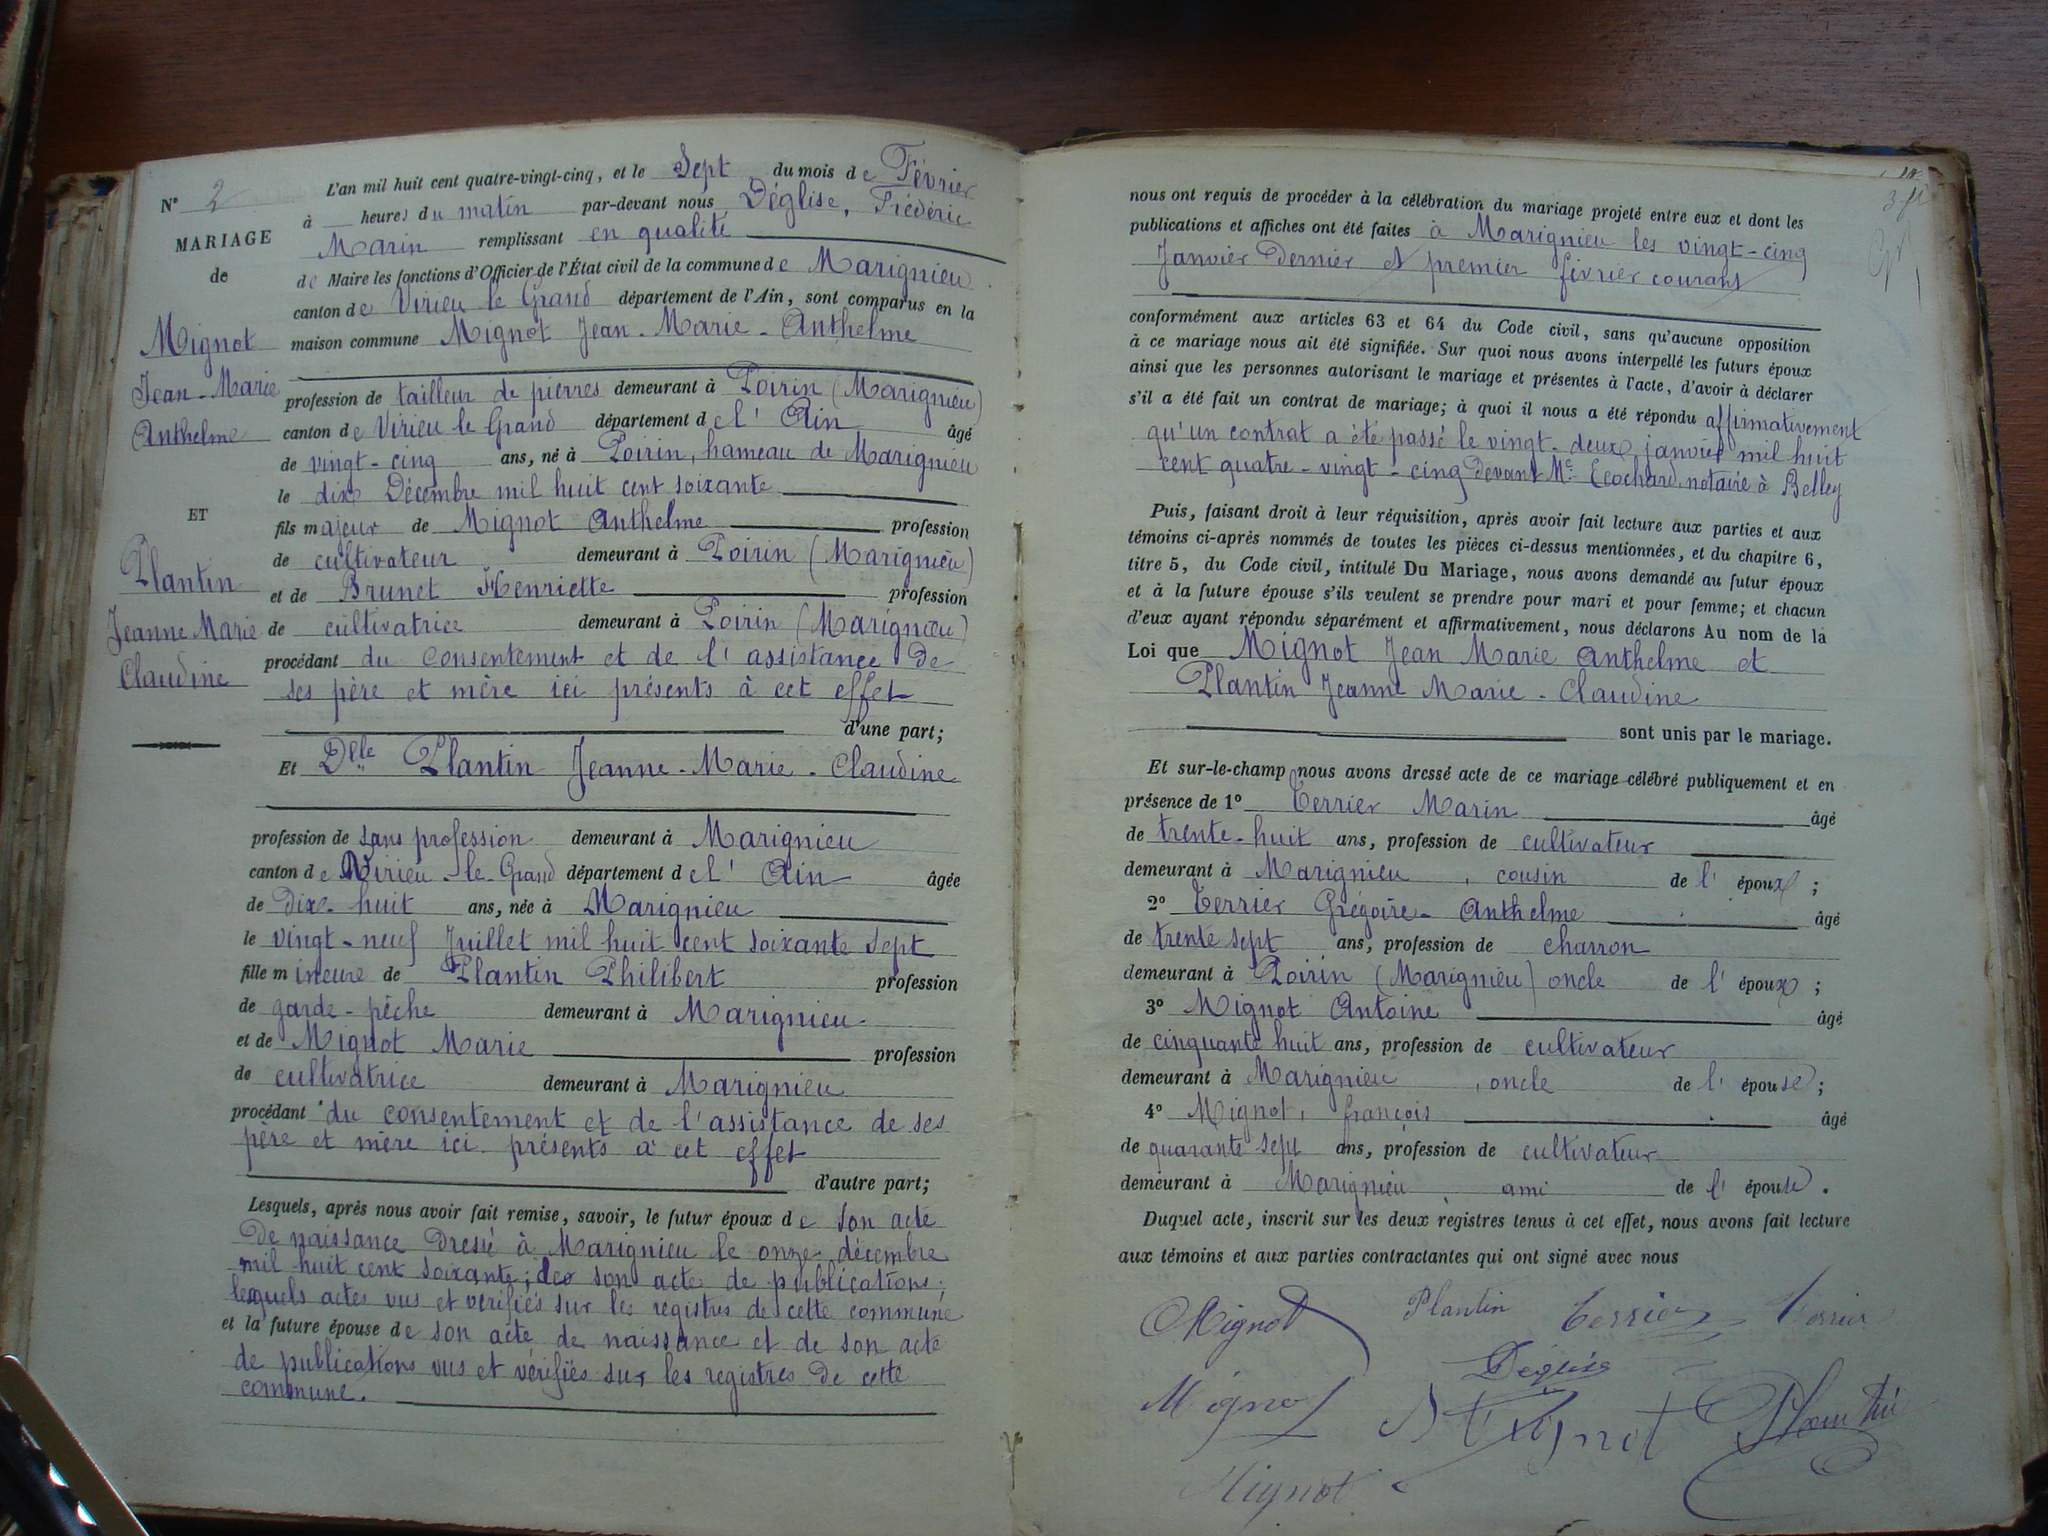 N° 2
MARIAGE
de
Mignot
Jean-Marie
Anthelme
ET
Plantin
Jeanne Marie
Claudine
L'an mil huit cent quatre-vingt-cinq, et le Sept du mois de Février
à heures du matin par-devant nous Déglise, Frédéric
Marin remplissant en qualité
de Maire les fonctions d'Officier de l'État civil de la commune de Marignieu
canton de Virieu le Grand département de l'Ain, sont comparus en la
maison commune Mignot Jean-Marie-Anthelme
profession de tailleur de pierres demeurant à Poirin (Marignieu)
canton de Virieu le Grand département de l'Ain âgé
de vingt-cinq ans, né à Poirin, hameau de Marignieu
le dix Décembre mil huit cent soixante
fils majeur de Mignot Anthelme profession
de cultivateur demeurant à Poirin (Marignieu)
et de Brunet Henriette profession
de cultivatrice demeurant à Poirin (Marignieu)
procédant du consentement et de l'assistance de
ses père et mère ici présents à cet effet
d'une part;
Et Dlle Plantin Jeanne-Marie-Claudine
profession de sans profession demeurant à Marignieu
canton de Virieu-le-Grand département de l'Ain âgée
de dix-huit ans, née à Marignieu
le vingt-neuf Juillet mil huit cent soixante sept
fille mineure de Plantin Philibert profession
de garde-pêche demeurant à Marignieu
et de Mignot Marie profession
de cultivatrice demeurant à Marignieu
procédant du consentement et de l'assistance de ses
père et mère ici présents à cet effet
d'autre part;
Lesquels, après nous avoir fait remise, savoir, le futur époux de son acte
de naissance dressé à Marignieu le onze décembre
mil huit cent soixante; de son acte de publications;
lesquels actes vus et vérifiés sur les registres de cette commune
et la future épouse de son acte de naissance et de son acte
de publications vus et vérifiés sur les registres de cette
commune.
nous ont requis de procéder à la célébration du mariage projeté entre eux et dont les
publications et affiches ont été faites à Marignieu les vingt-cinq
Janvier dernier et premier février courant
conformément aux articles 63 et 64 du Code civil, sans qu'aucune opposition
à ce mariage nous ait été signifiée. Sur quoi nous avons interpellé les futurs époux
ainsi que les personnes autorisant le mariage et présentes à l'acte, d'avoir à déclarer
s'il a été fait un contrat de mariage; à quoi il nous a été répondu affirmativement
qu'un contrat a été passé le vingt-deux janvier mil huit
cent quatre-vingt-cinq devant Me Ecochard notaire à Belley
Puis, faisant droit à leur réquisition, après avoir fait lecture aux parties et aux
témoins ci-après nommés de toutes les pièces ci-dessus mentionnées, et du chapitre 6,
titre 5, du Code civil, intitulé Du Mariage, nous avons demandé au futur époux
et à la future épouse s'ils veulent se prendre pour mari et pour femme; et chacun
d'eux ayant répondu séparément et affirmativement, nous déclarons Au nom de la
Loi que Mignot Jean Marie Anthelme et
Plantin Jeanne Marie-Claudine
sont unis par le mariage.
Et sur-le-champ nous avons dressé acte de ce mariage célébré publiquement et en
présence de 1° Terrier Marin âgé
de trente-huit ans, profession de cultivateur
demeurant à Marignieu, cousin de l'époux;
2° Terrier Grégoire-Anthelme âgé
de trente sept ans, profession de charron
demeurant à Poirin (Marignieu) oncle de l'époux;
3° Mignot Antoine âgé
de cinquante huit ans, profession de cultivateur
demeurant à Marignieu, oncle de l'épouse;
4° Mignot, françois âgé
de quarante sept ans, profession de cultivateur
demeurant à Marignieu, ami de l'épouse.
Duquel acte, inscrit sur les deux registres tenus à cet effet, nous avons fait lecture
aux témoins et aux parties contractantes qui ont signé avec nous
Mignot Plantin Terrier Terrier
Déglise
Mignot Mignot Plantin
Mignot